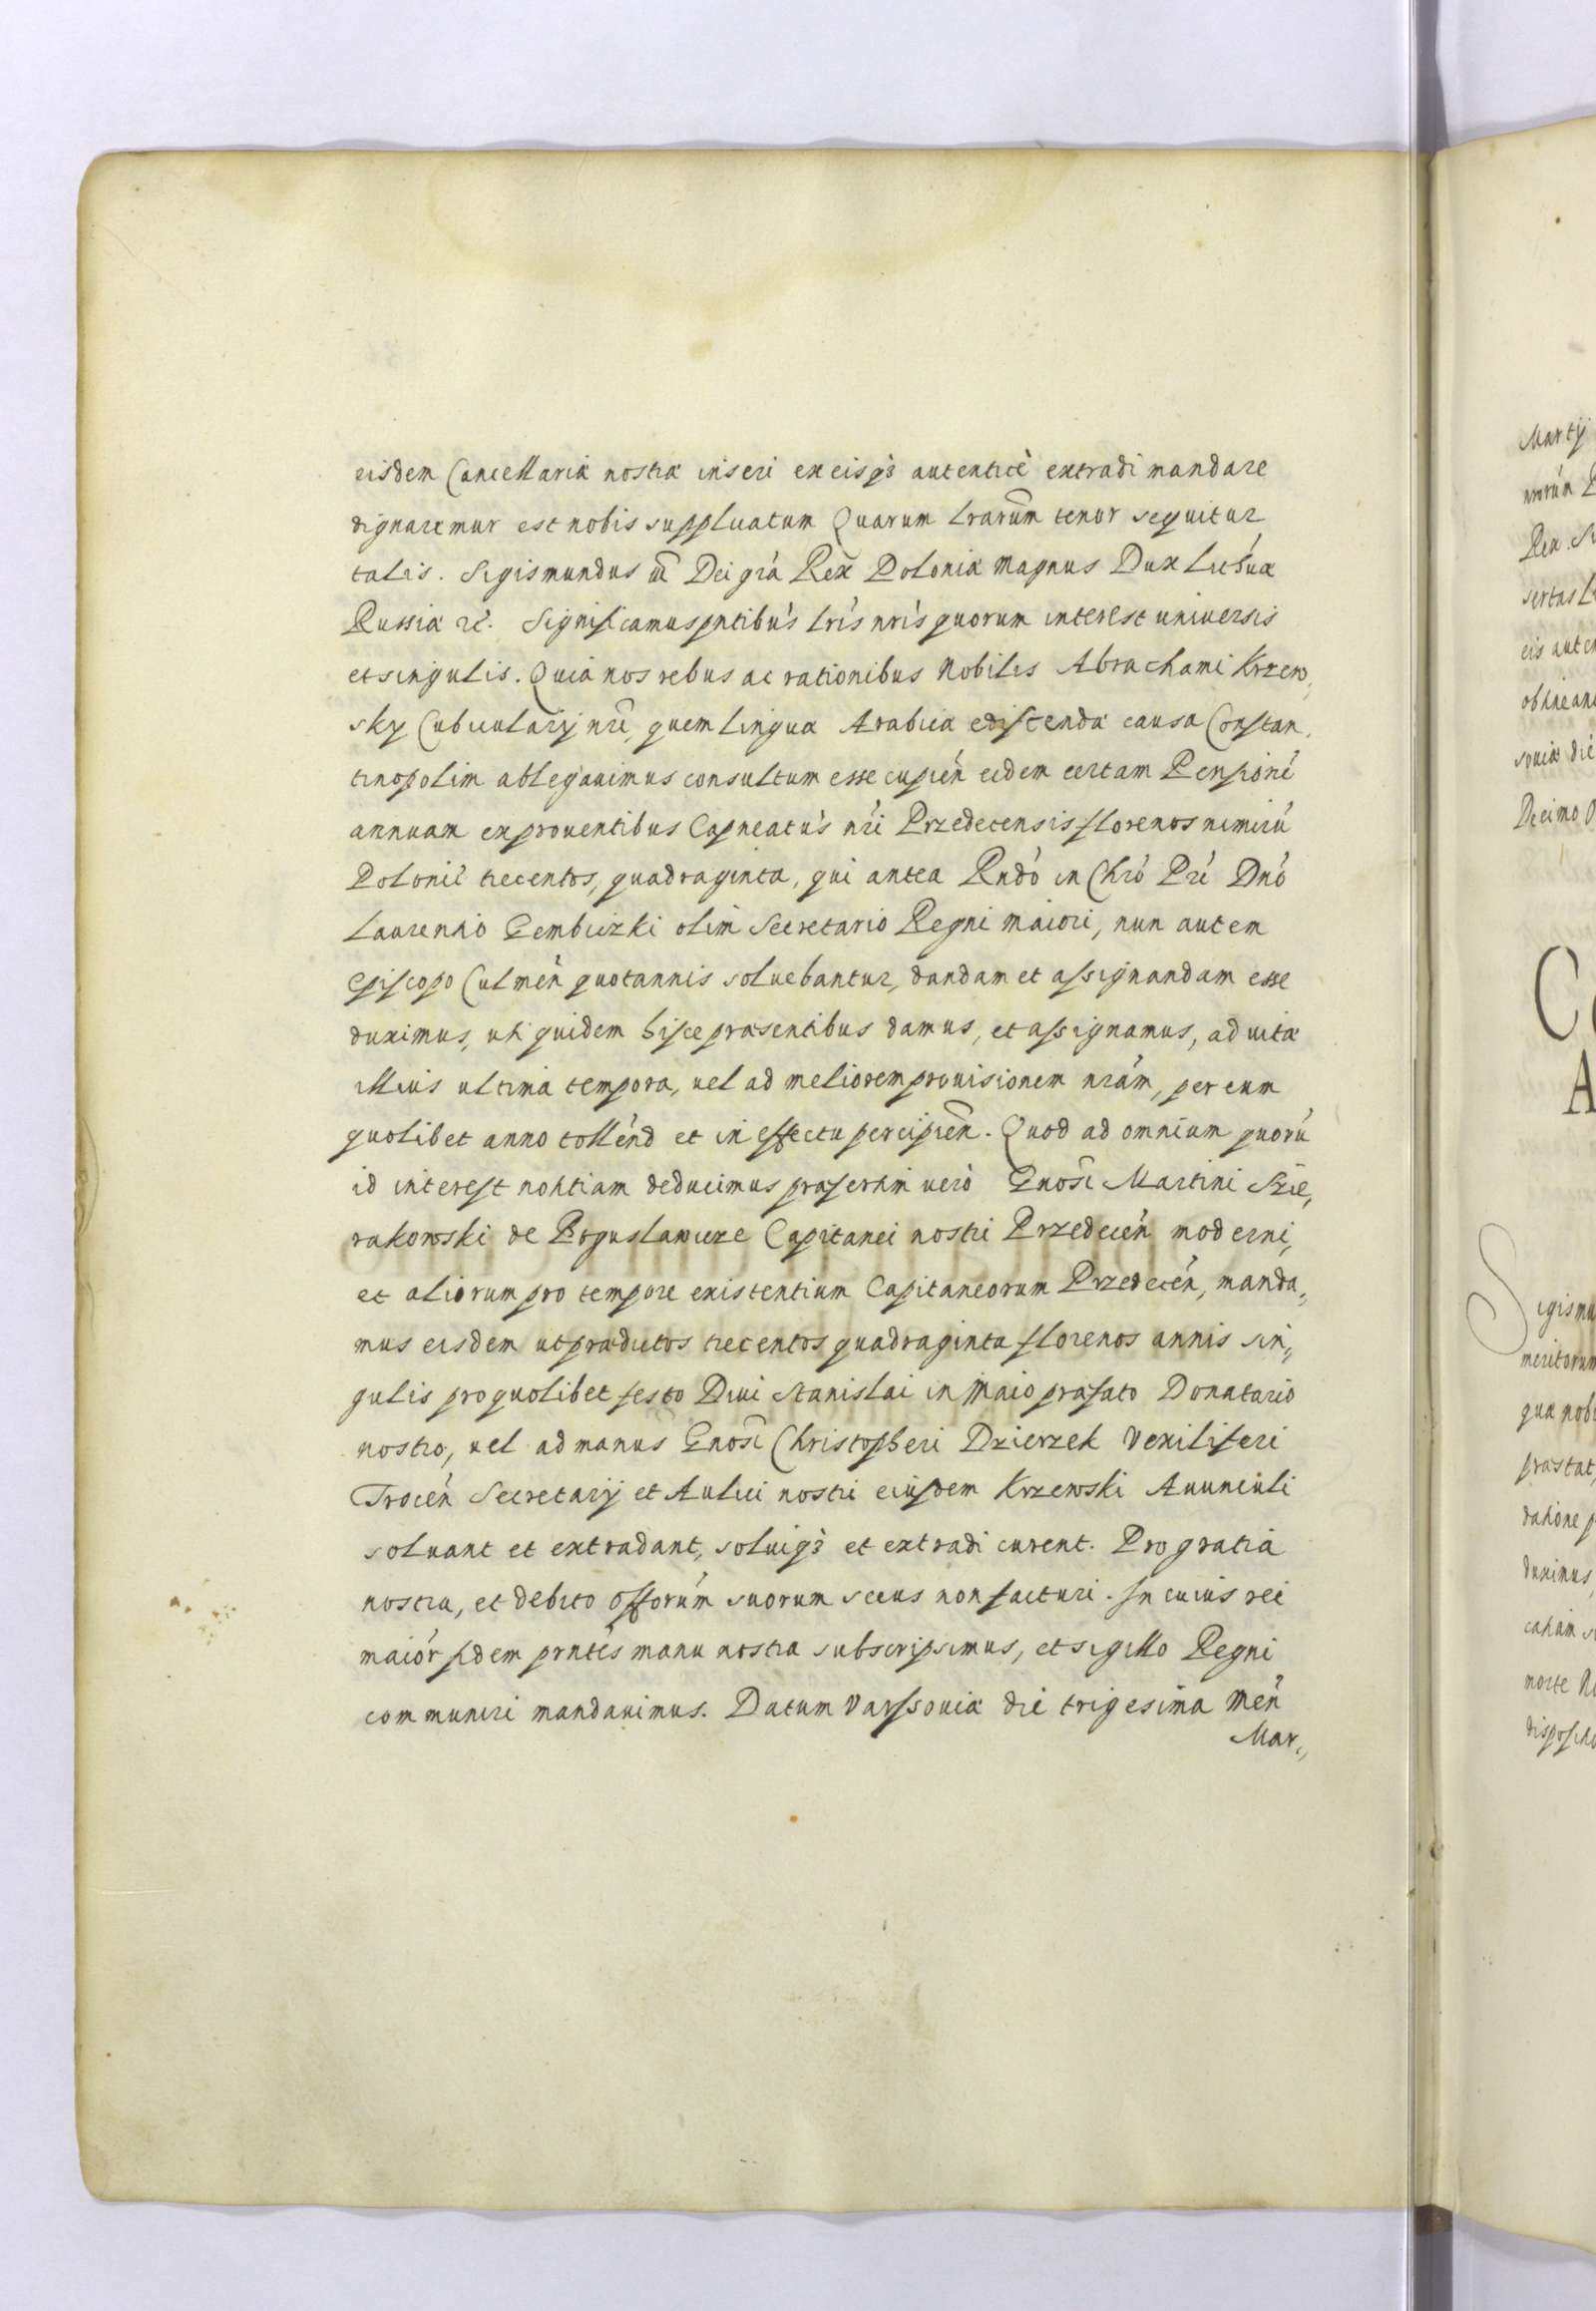 eisdem Cancellariæ nostræ inseri ex eisq3 autenticè extradi mandare
dignaremur est nobis supplicatum Quarum Lrarum tenor sequitur
talis. Sigismundus III Dei grá Rex Poloniæ Magnus Dux Lithúæ
Russiæ zc. Significamus pntibús Lrís nrís quorum interest universis
et singulis. Quia nos rebus ac rationibus Nobilis Abrachami Krzew,
sky Cubicularij nri, quem linguæ Arabicæ ediscendæ causa Constan,
tinopolim ablegavimus consultum esse cupién eidem certam Pensioné
annuam ex proventibus Capneatús nri Przedecensis florenos nimirú
Polonié trecentos, quadraginta, qui antea Rndó in Chró Pré Dnó
Laurentio Gembiczki olim Secretario Regni Maiori, nun autem
Episcopo Culmén quotannis soluebantur, dandam et assignandam esse
duximus, uti quidem hisce præsentibus damus, et assignamus, ad vitæ
illius ultima tempora, uel ad meliorem prouisionem nrám, per eum
quolibet anno tollénd et in effectu percipién. Quod ad omnium quorú
id interest notitiam deducimus præsertim uerò Gnosi Martini Szie,
rakowski de Boguslawicze Capitanei nostri Przedecén moderni,
et aliorum pro tempore existentium Capitaneorum Przedecén, manda,
mus eisdem ut prædictos trecentos quadraginta florenos annis sin,
gulis pro quolibet festo Diui Stanislai in Maio præfato Donatario
nostro, uel ad manus Gnosi Christopheri Dzierzek Vexiliferi
Trocén Secretarij et Aulici nostri eiusdem Krzewski Auunculi
soluant et extradant, soluiq3 et extradi curent. Pro gratia
nostra, et debito offorúm suorum secus non facturi. In cuius rei
maiór fidem prntés manu nostra subscripsimus, et sigillo Regni
communiri mandauimus. Datum Varssouiæ dié trigesima Mén
Mar,
Martij
Rex. Si
eis auten
souiæ dié
Decimo
C
A
Sigismu
meritorum
quæ nobi
præstat,
datione p
duximus
morte